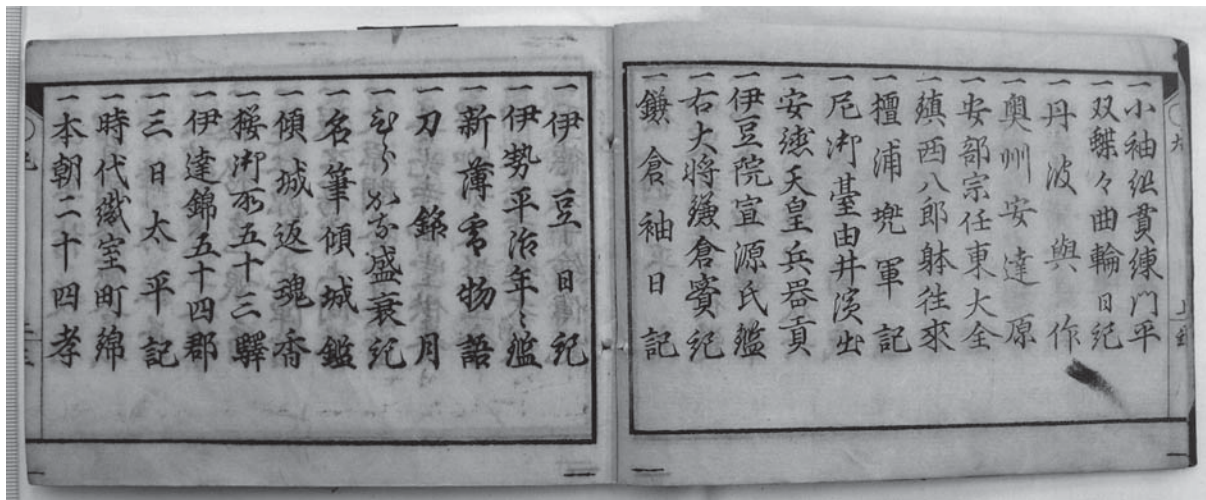 一小袖組貫練門平
一双蝶々曲輪日紀
一丹波與作
一奥州安達原
一安部宗任東大全
一鎮西八郎躰往來
一檀浦兜軍記
一尼御臺由井濱出
一安徳天皇兵器貢
一伊豆院宣源氏鑑
一右大将鎌倉實紀
一鎌倉袖日記
一伊豆日紀
一伊勢平治年々鑑
一新薄雪物語
一刀銘月
一ひらかな盛衰紀
一名筆傾城鑑
一傾城返魂香
一桜御所五十三驛
一伊達錦五十四郡
一三日太平記
一時代織室町錦
一本朝二十四孝